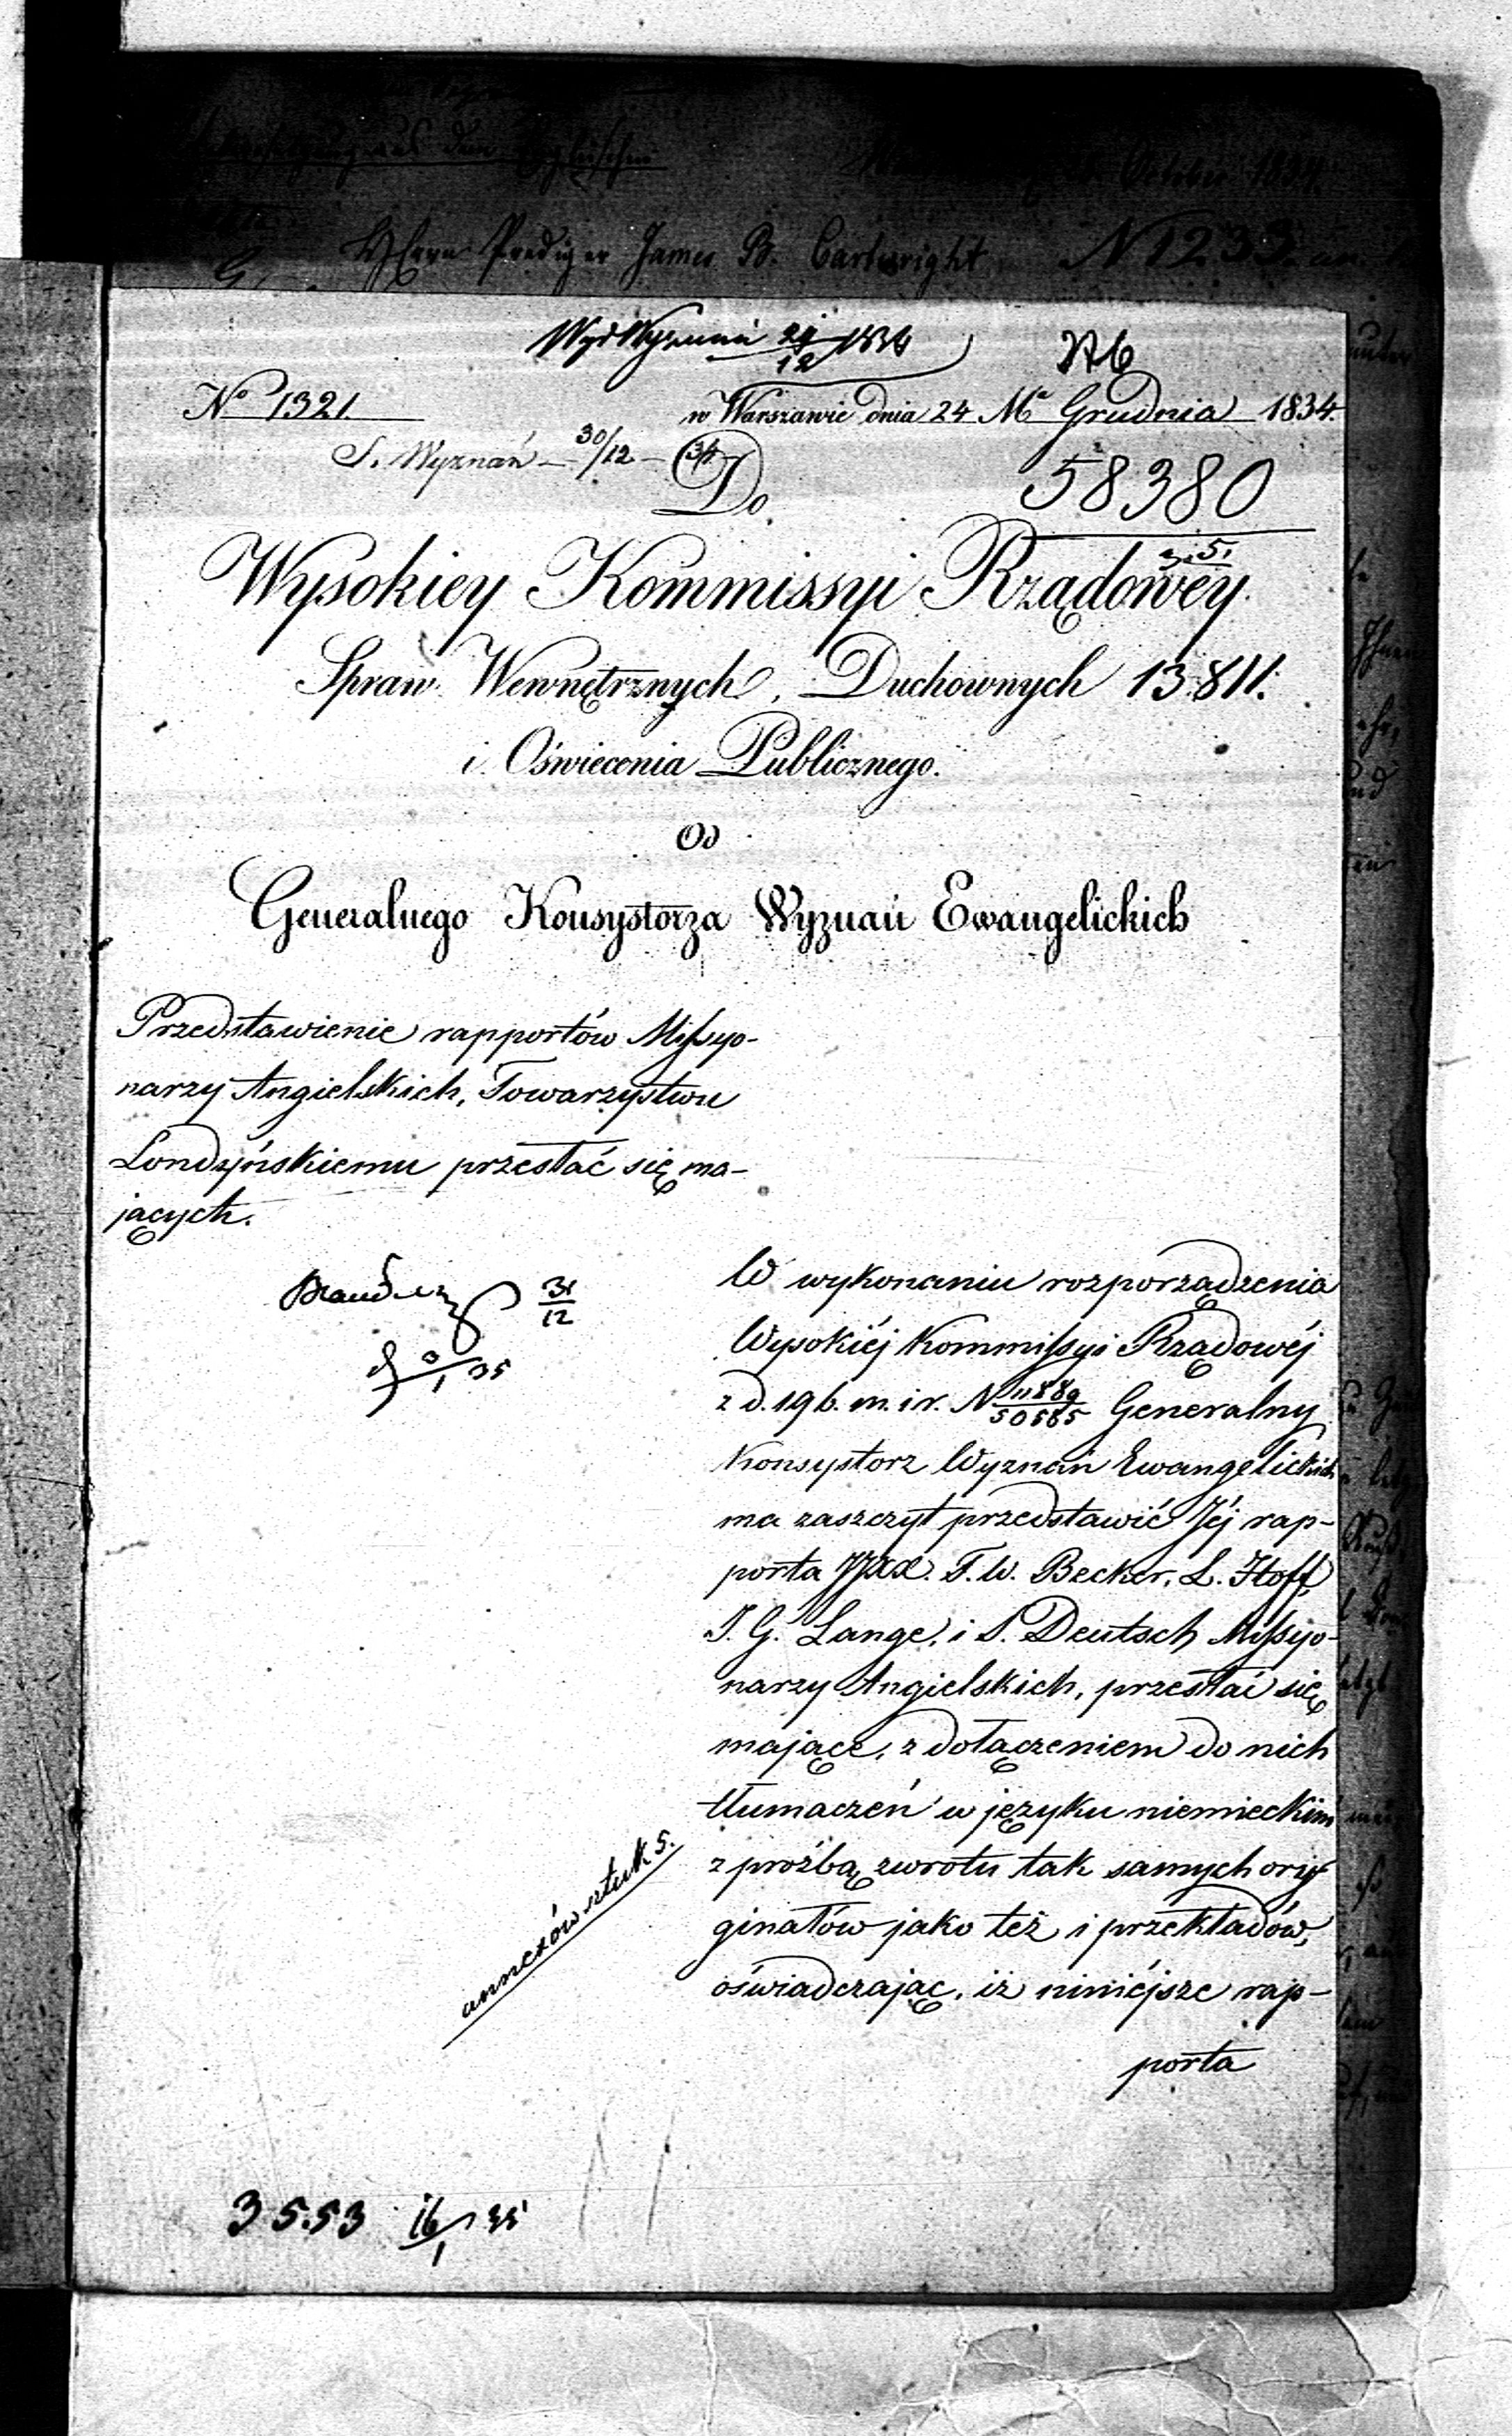 October 1834
Herrn Prediger James B. Cartwright N 1233.
Wyd Wyznań 29/12 1834
No 1321
w Warszawie dnia 24 Ma Grudnia 1834.
S. Wyznań - 30/12 -
58380
Do
Wysokiey Kommissyi Rządowey
Spraw Wewnętrznych, Duchownych 13811.
i Oświecenia Publicznego.
Od
Generalnego Konsystorza Wyznań Ewangelickich
Przedstawienie rapportów Missyo-
narzy Angielskich, Towarzystwu
Londyńskiemu przesłać się ma-
jących.
31/12
3/1 35
W wykonaniu rozporządzenia
Wysokiéj Kommissyi Rządowéj
z d. 19 b. m. i r. N 11889/50585 Generalny
Konsystorz Wyznań Ewangelickich
ma zaszczyt przedstawić Jéj rap-
porta JJXX. F. W. Becker, L. Hoff,
J. G. Lange, i S. Deutsch Missyo-
narzy Angielskich, przesłać się
mające, z dołączeniem do nich
tłumaczeń w języku niemieckim
z proźbą zwrotu tak samych ory-
ginałów jako też i przekładów,
oświadczając, iż niniéjsze rap-
porta
annexów sztuk 5.
3553 16/1 35